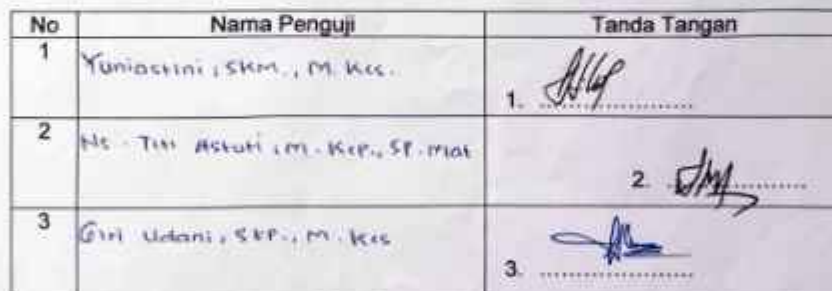 No Nama Penguji Tanda Tangan
1 Yuniastini, SKM., M. Kes.
1. ....................
2 Ns. Titi Astuti, M. Kep., SP. Mat
2. ....................
3 Giri Udani, SKP., M. Kes
3. ....................